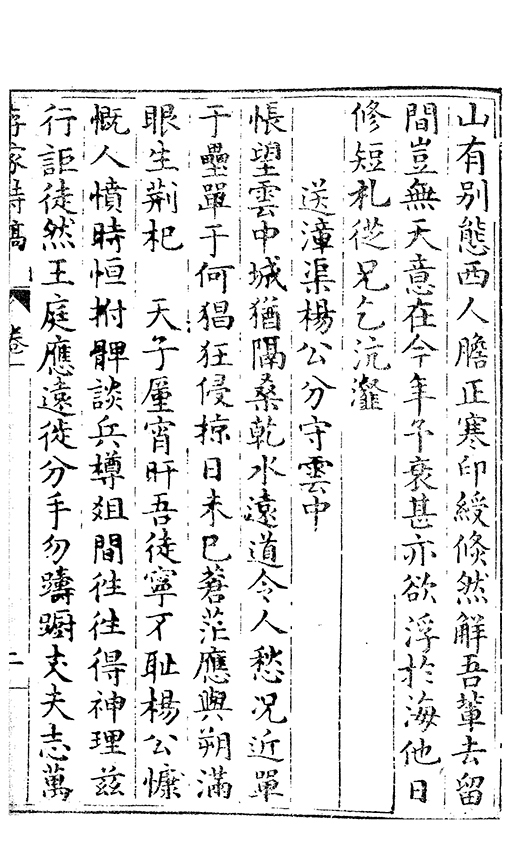 山有別態西人膽正寒印綬倏然解吾輩去留
間豈無天意在今年予衰甚亦欲浮於海他日
修短札從兄乞沆瀣
送漳渠楊公分守雲中
悵望雲中城猶隔桑乾水遠道令人愁况近單
于壘單于何猖狂侵掠日未已蒼茫應與朔滿
眼生荆杞　天子廑宵旰吾徒寧不耻楊公慷
慨人憤時恒拊髀談兵樽俎間徃徃得神理茲
行詎徒然王庭應遠徙分手勿躊躕丈夫志萬
詩稿　卷一　二